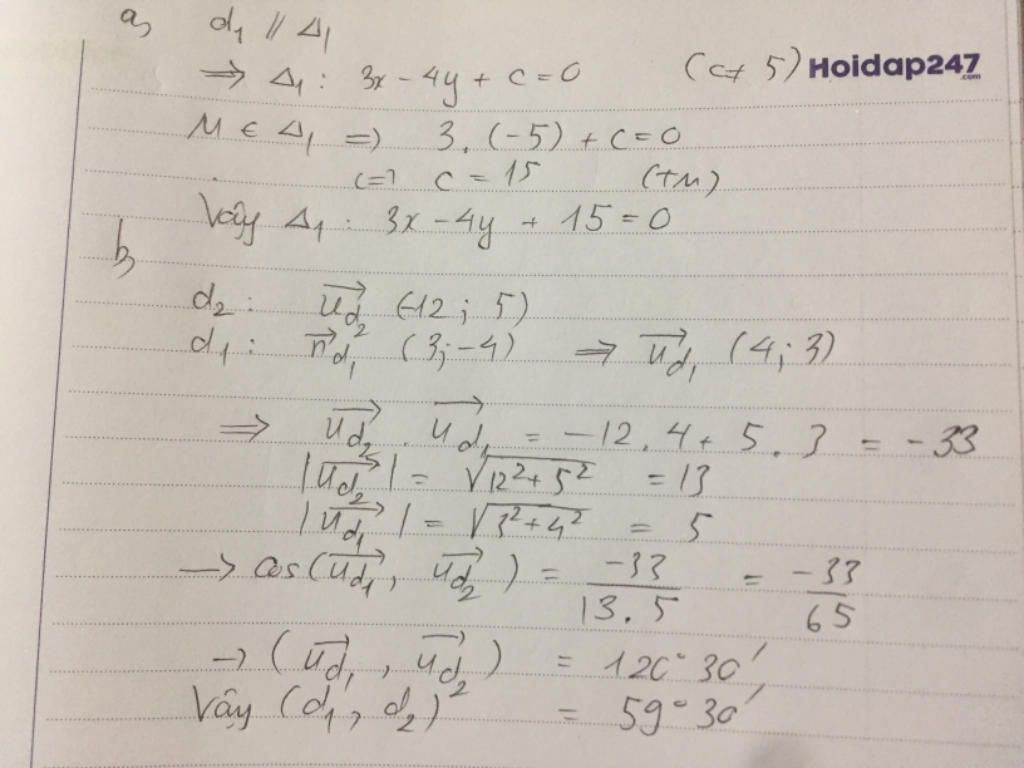 a, d₁ // Δ₁
⇒ Δ₁ : 3x - 4y + c = 0 (c ≠ 5) Hoidap247.com
M ∈ Δ₁ ⇒ 3. (-5) + c = 0
⇔ c = 15 (TM)
Vậy Δ₁ : 3x - 4y + 15 = 0
b,
d₂ : u⃗d₂ (-12 ; 5)
d₁ : n⃗d₁ (3; -4) ⇒ u⃗d₁ (4; 3)
⇒ u⃗d₂ . u⃗d₁ = -12. 4 + 5 . 3 = -33
|u⃗d₂| = √(12² + 5²) = 13
|u⃗d₁| = √(3² + 4²) = 5
→ cos(u⃗d₁, u⃗d₂) = -33/13.5 = -33/65
→ (u⃗d₁, u⃗d₂) = 120°30'
Vậy (d₁, d₂) = 59°30'